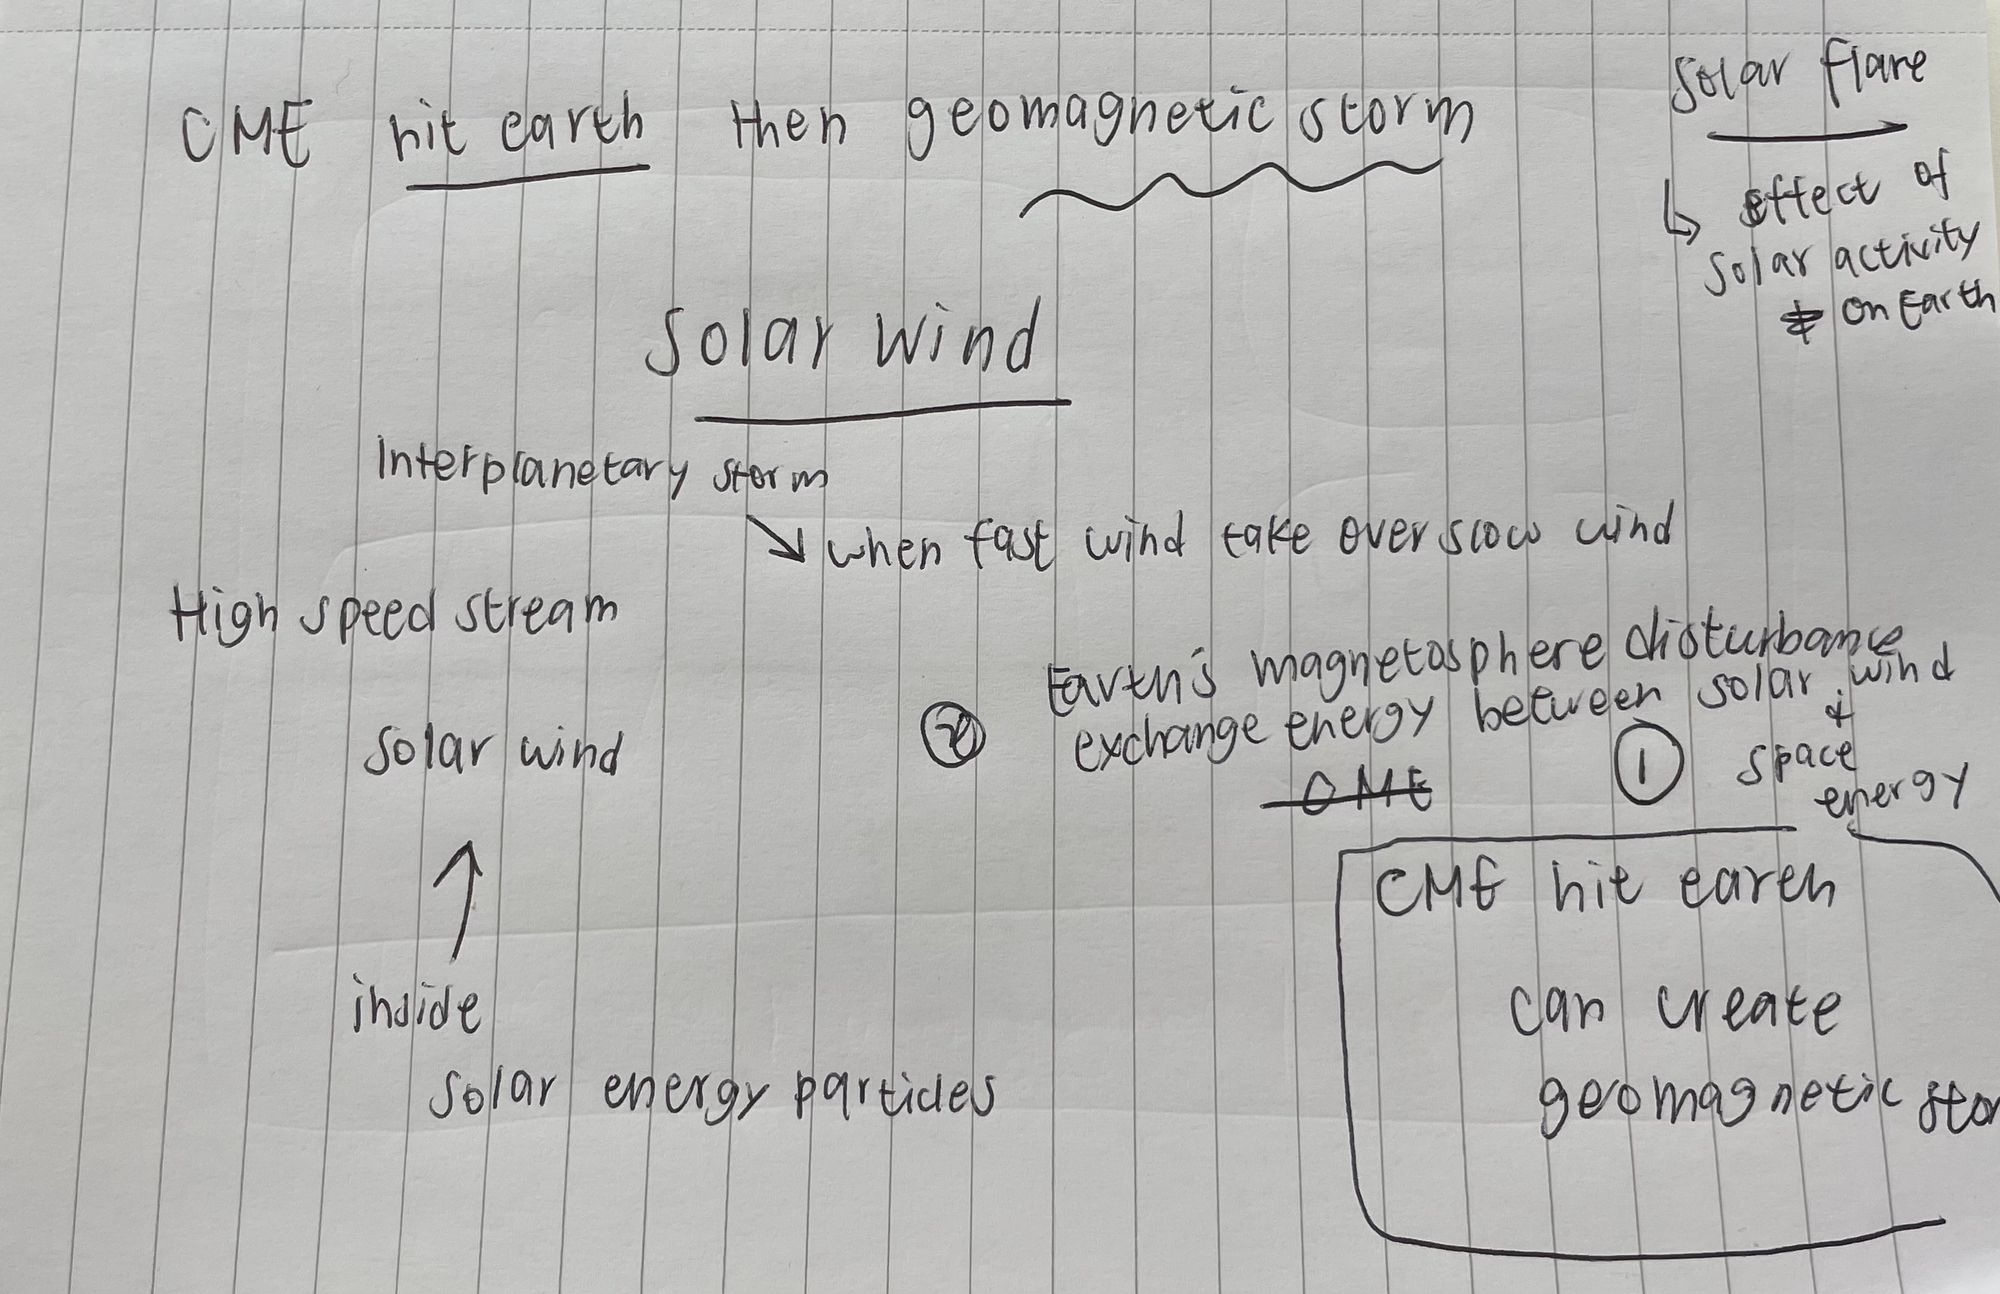 CME hit earth then geomagnetic storm
Solar flare
↳ effect of
solar activity
on Earth
Solar Wind
Interplanetary storm
↘ when fast wind take over slow wind
High speed stream
Earth's magnetosphere disturbance
② exchange energy between solar wind
&
① space
energy
solar wind
CME
↑
CME hit earth
can create
geomagnetic stor
inside
solar energy particles